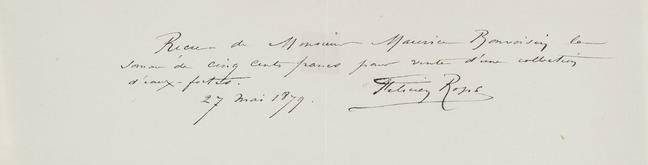 Reçu de Monsieur Maurice Bonvoisin la
somme de cinq cents francs pour vente d'une collection
d'eaux-fortes.
27 mai 1879.
Félicien Rops